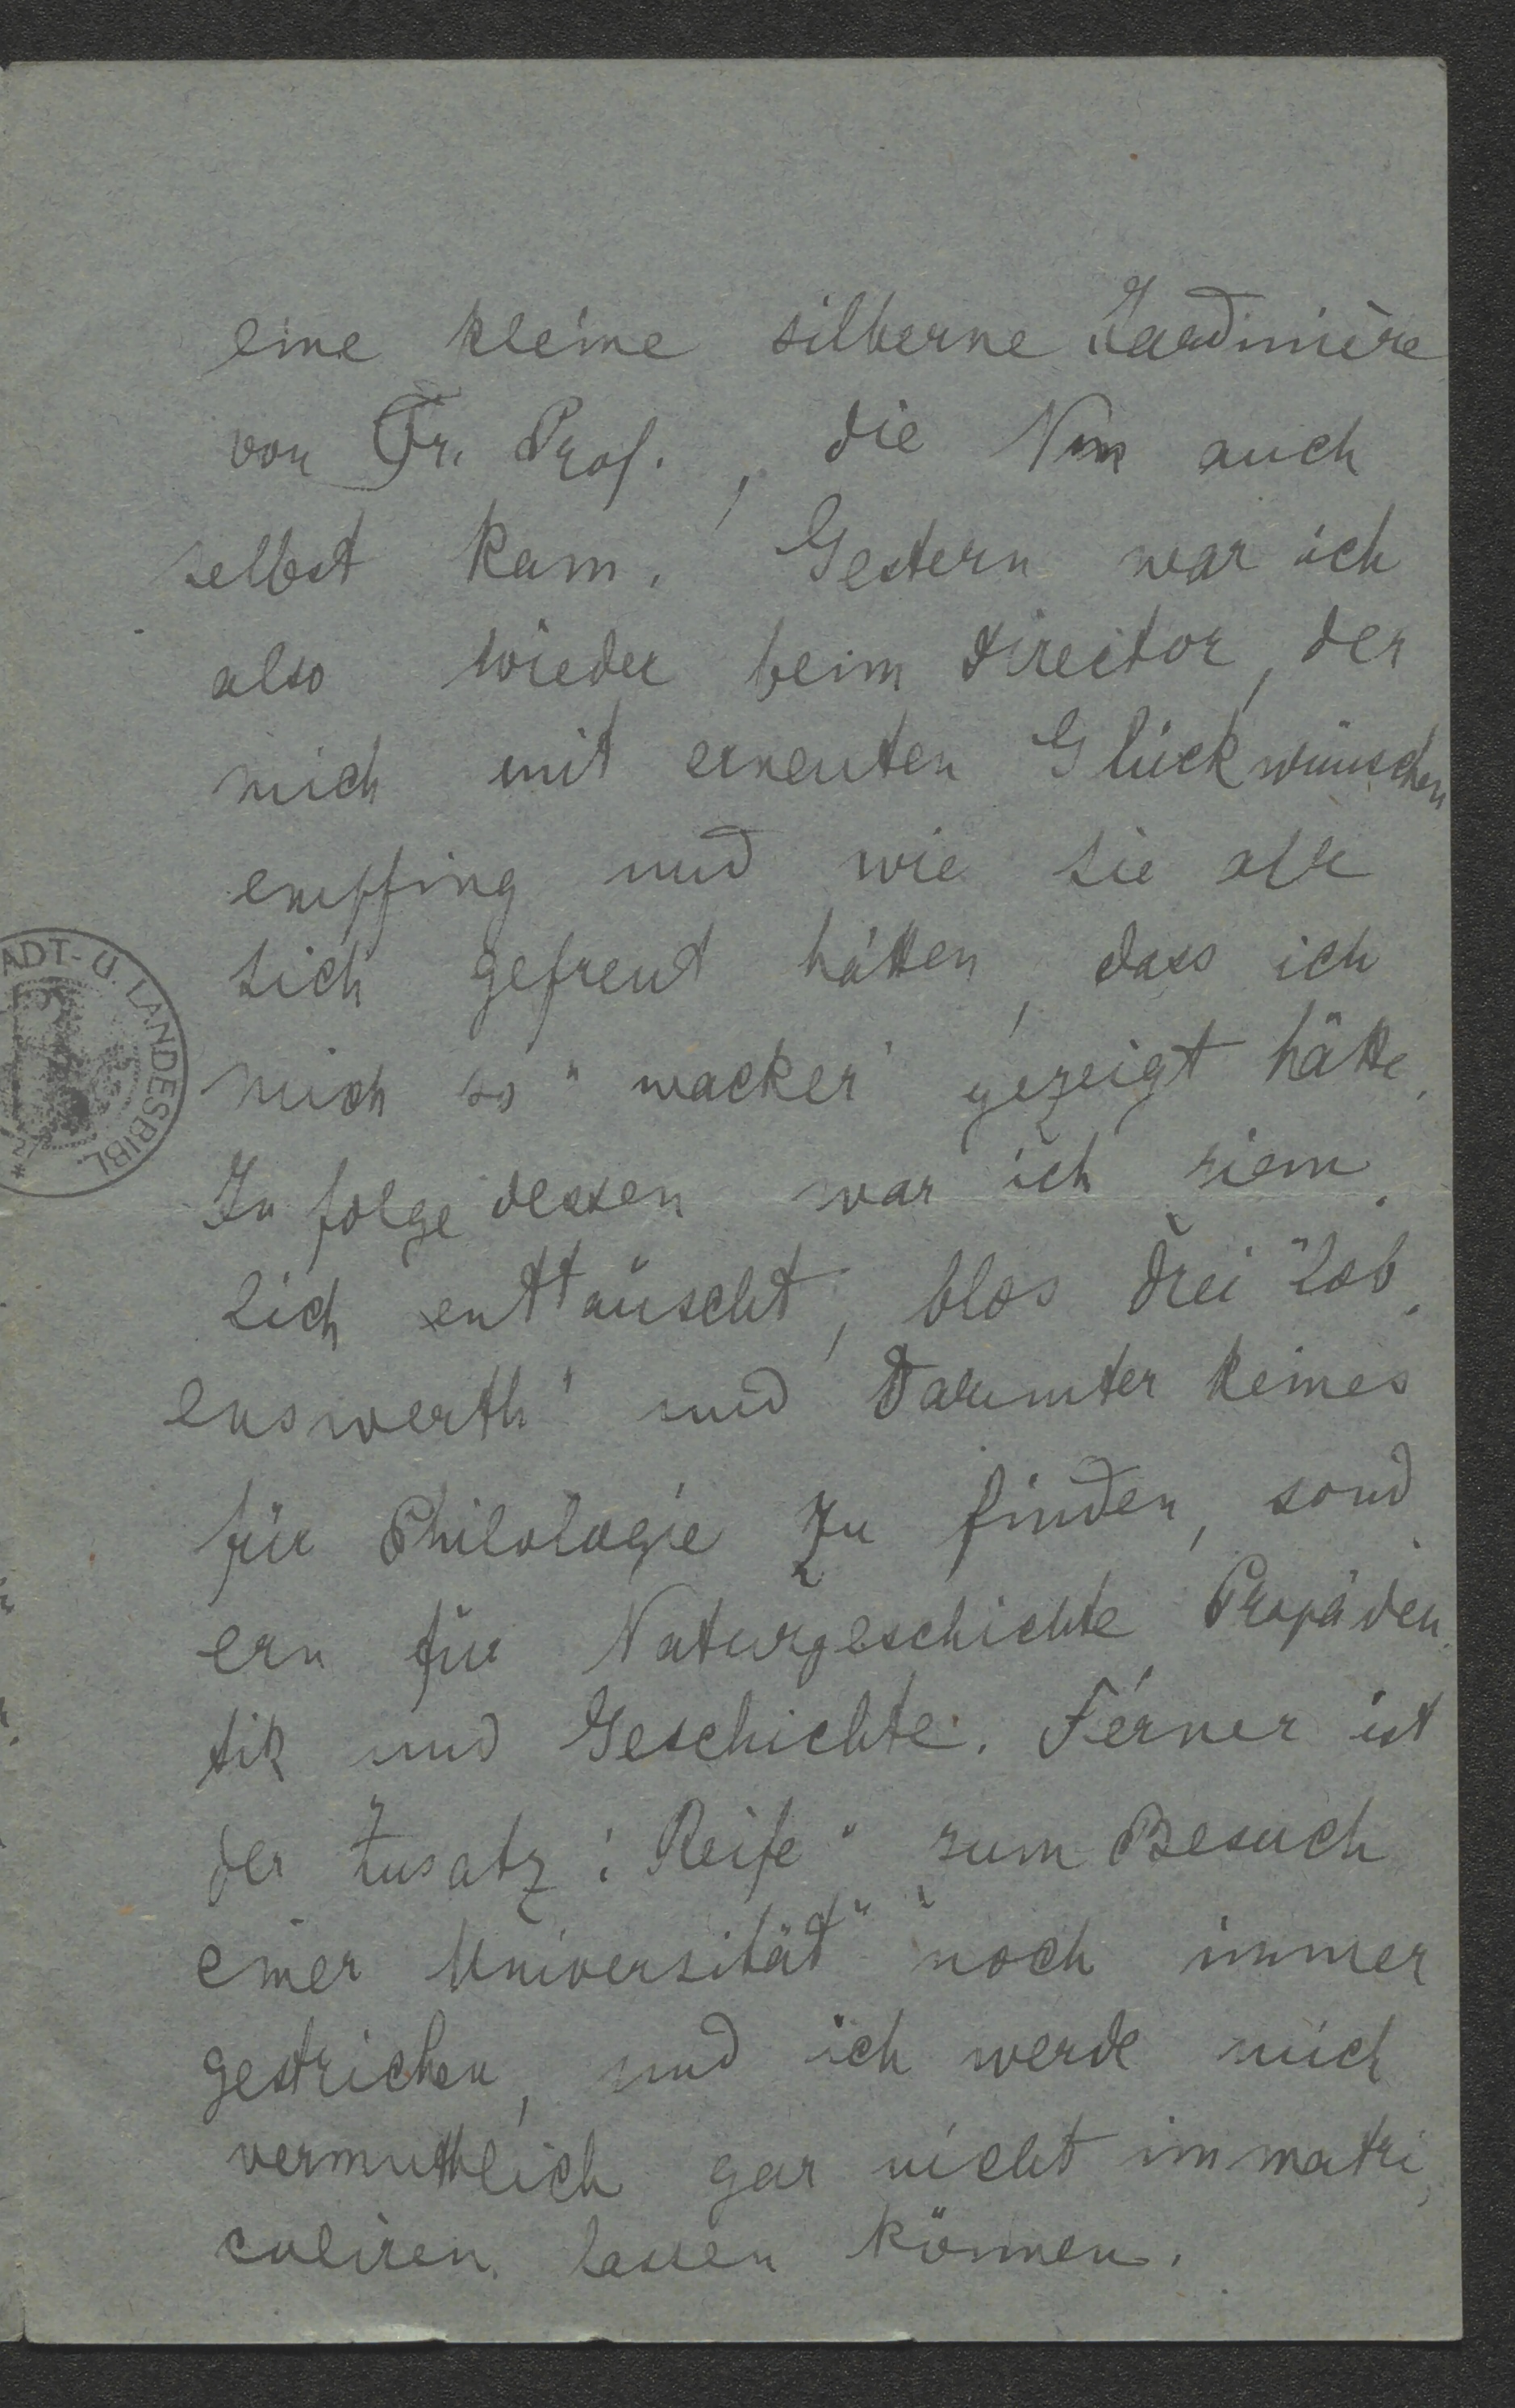 eine kleine silberne Jardinière
von Fr. Prof., die Nm auch
selbst kam. Gestern war ich
also wieder beim Director, der
mich mit erneuten Glückwünschen
empfing und wie sie alle
sich gefreut hätten, dass ich
mich so "wacker" gezeigt hätte.
In folge dessen war ich ziem
lich enttäuscht, blos drei "lob
enswerth" und darunter keines
für Philologie zu finden, sond
ern für Naturgeschichte Propädeu
tik und Geschichte. Ferner ist
der Zusatz: Reife "zum Besuch
einer Universität" noch immer
gestrichen, und ich werde mich
vermuthlich gar nicht immatri
culiren lassen können.
ADT- U. LANDESBIBL.